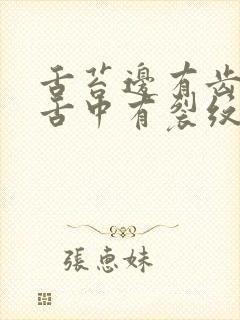 舌苔邊有齒
舌中有裂紋
張惠妹